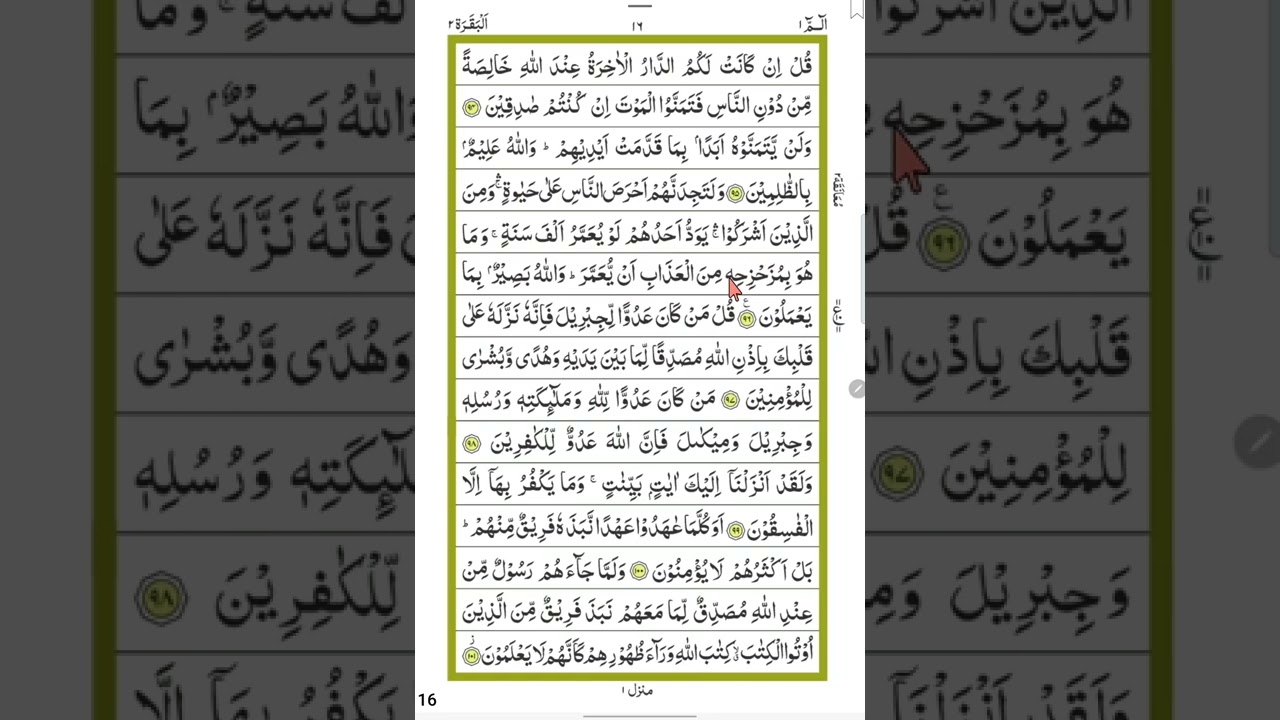 الٓـمّٓ ١ ١٦ اَلْبَقَرَة ٢
قُلْ اِنْ كَانَتْ لَكُمُ الدَّارُ الْاٰخِرَةُ عِنْدَ اللّٰهِ خَالِصَةً
مِّنْ دُوْنِ النَّاسِ فَتَمَنَّوُا الْمَوْتَ اِنْ كُنْتُمْ صٰدِقِيْنَ ۝۹۴
وَلَنْ يَّتَمَنَّوْهُ اَبَدًاۢ بِمَا قَدَّمَتْ اَيْدِيْهِمْ ؕ وَاللّٰهُ عَلِيْمٌۢ
بِالظّٰلِمِيْنَ ۝۹۵ وَلَتَجِدَنَّهُمْ اَحْرَصَ النَّاسِ عَلٰى حَيٰوةٍ ۛۚ وَمِنَ
مُعَانَقَة ٢
الَّذِيْنَ اَشْرَكُوْا ۛۚ يَوَدُّ اَحَدُهُمْ لَوْ يُعَمَّرُ اَلْفَ سَنَةٍ ۚ وَمَا
هُوَ بِمُزَحْزِحِهٖ مِنَ الْعَذَابِ اَنْ يُّعَمَّرَ ؕ وَاللّٰهُ بَصِيْرٌۢ بِمَا
يَعْمَلُوْنَ ۝۹۶ قُلْ مَنْ كَانَ عَدُوًّا لِّجِبْرِيْلَ فَاِنَّهٗ نَزَّلَهٗ عَلٰى
قَلْبِكَ بِاِذْنِ اللّٰهِ مُصَدِّقًا لِّمَا بَيْنَ يَدَيْهِ وَهُدًى وَّبُشْرٰى
لِلْمُؤْمِنِيْنَ ۝۹۷ مَنْ كَانَ عَدُوًّا لِّلّٰهِ وَمَلٰٓئِكَتِهٖ وَرُسُلِهٖ
وَجِبْرِيْلَ وَمِيْكٰىلَ فَاِنَّ اللّٰهَ عَدُوٌّ لِّلْكٰفِرِيْنَ ۝۹۸
وَلَقَدْ اَنْزَلْنَاۤ اِلَيْكَ اٰيٰتٍۭ بَيِّنٰتٍ ۚ وَمَا يَكْفُرُ بِهَاۤ اِلَّا
الْفٰسِقُوْنَ ۝۹۹ اَوَكُلَّمَا عٰهَدُوْا عَهْدًا نَّبَذَهٗ فَرِيْقٌ مِّنْهُمْ ؕ
بَلْ اَكْثَرُهُمْ لَا يُؤْمِنُوْنَ ۝۱۰۰ وَلَمَّا جَآءَهُمْ رَسُوْلٌ مِّنْ
عِنْدِ اللّٰهِ مُصَدِّقٌ لِّمَا مَعَهُمْ نَبَذَ فَرِيْقٌ مِّنَ الَّذِيْنَ
اُوْتُوا الْكِتٰبَ ۙ كِتٰبَ اللّٰهِ وَرَآءَ ظُهُوْرِهِمْ كَاَنَّهُمْ لَا يَعْلَمُوْنَ ۝۱۰۱
منزل ١
16